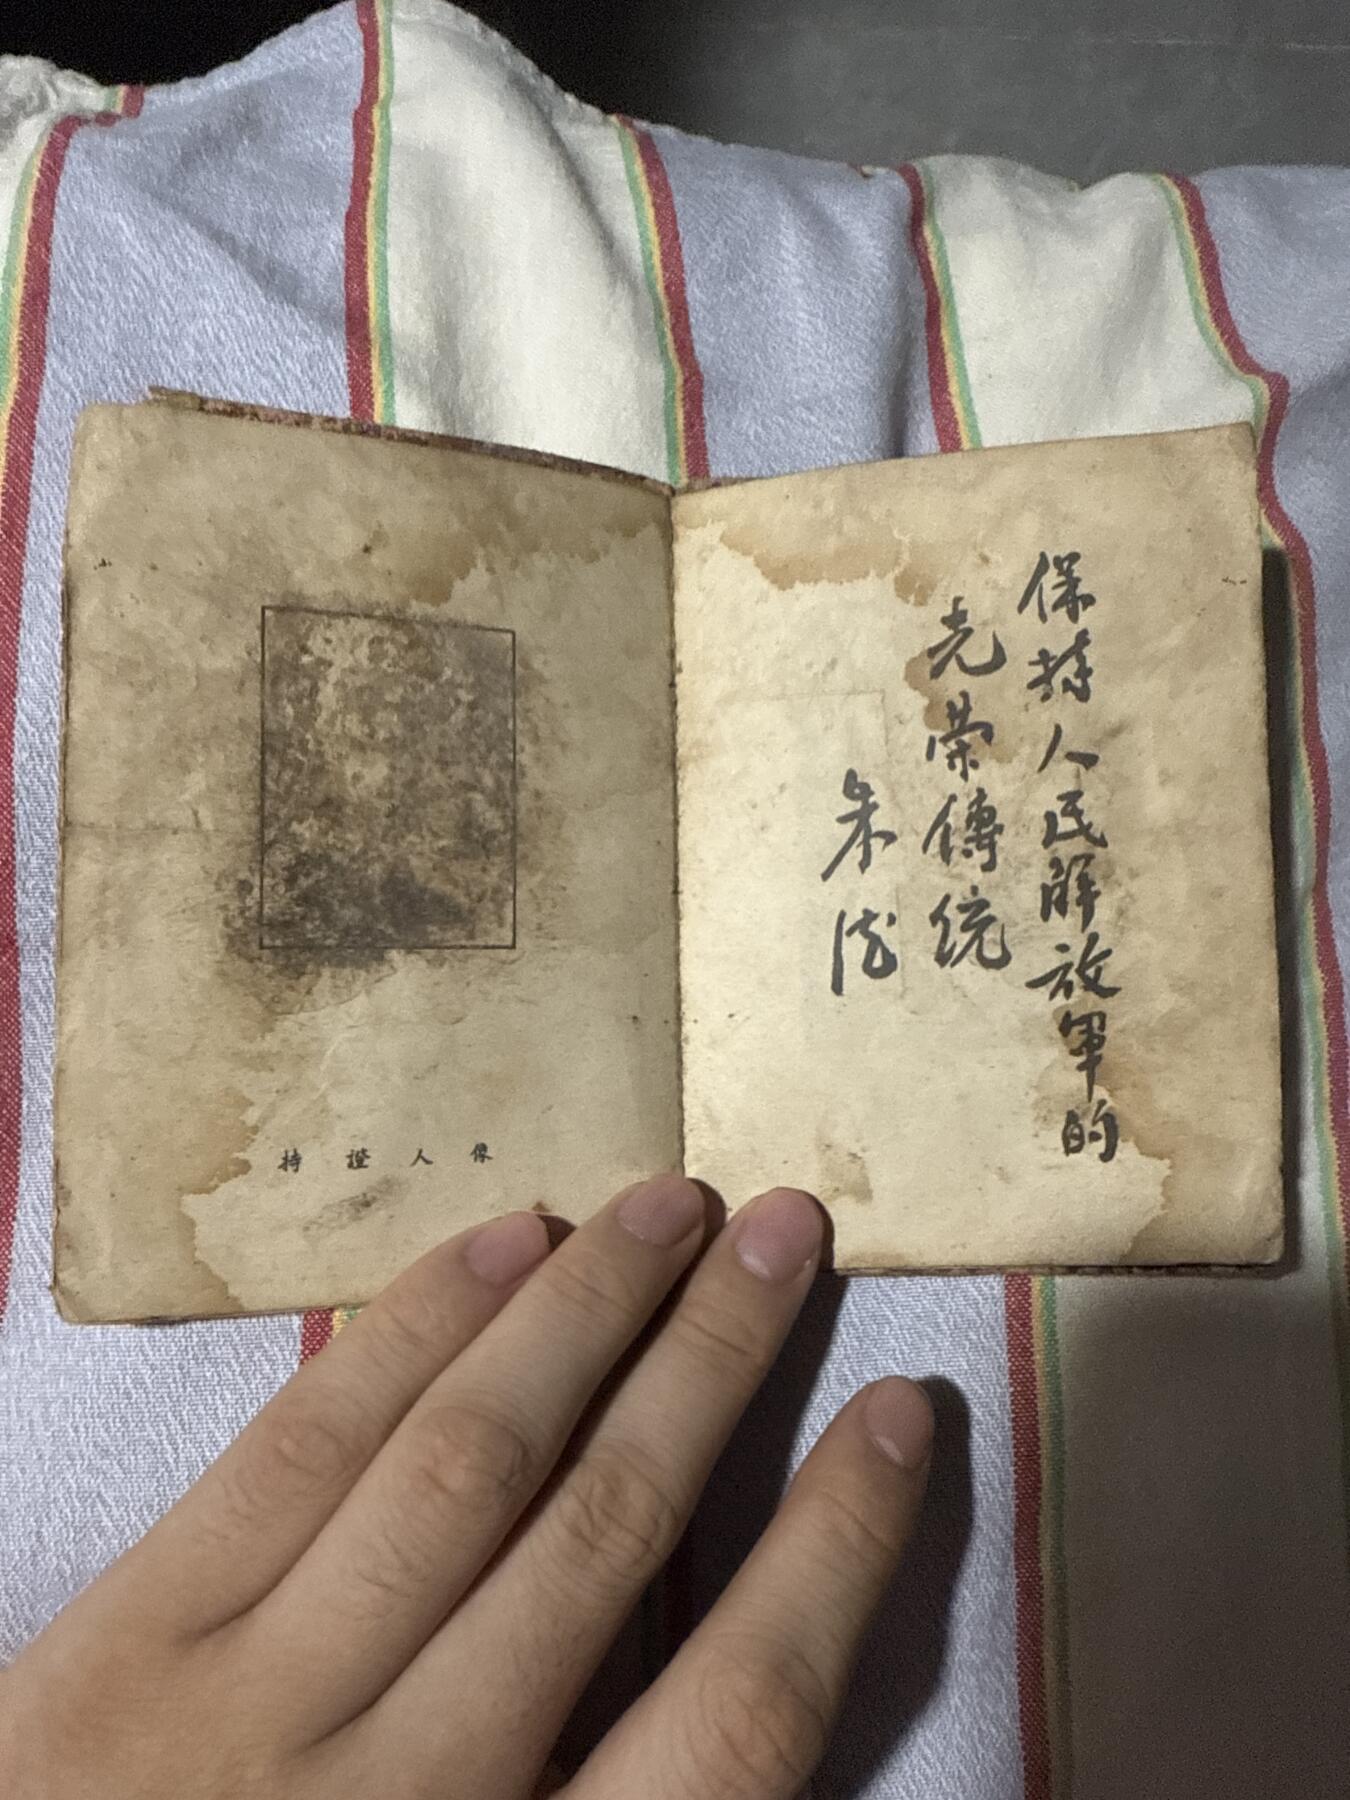 保持人民解放軍的
光荣傳统
朱德
持證人像